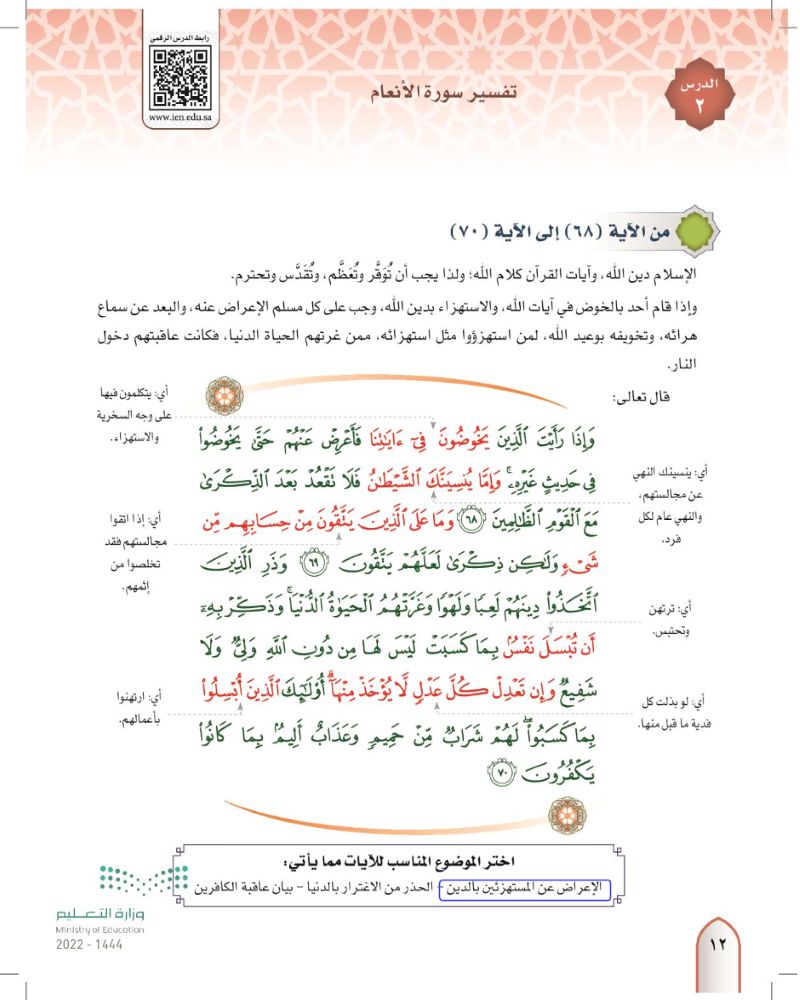 رابط الدرس الرقمي
www.ien.edu.sa
الدرس
٢
تفسير سورة الأنعام
من الآية (٦٨) إلى الآية (٧٠)
الإسلام دين الله، وآيات القرآن كلام الله؛ ولذا يجب أن تُوَقَّر وتُعَظَّم، وتُقَدَّس وتحترم.
وإذا قام أحد بالخوض في آيات الله، والاستهزاء بدين الله، وجب على كل مسلم الإعراض عنه، والبعد عن سماع
هرائه، وتخويفه بوعيد الله، لمن استهزؤوا مثل استهزائه، ممن غرتهم الحياة الدنيا، فكانت عاقبتهم دخول
النار.
قال تعالى:
أي: يتكلمون فيها
على وجه السخرية
والاستهزاء.
وَإِذَا رَأَيْتَ ٱلَّذِينَ يَخُوضُونَ فِىٓ ءَايَٰتِنَا فَأَعْرِضْ عَنْهُمْ حَتَّىٰ يَخُوضُوا۟
فِى حَدِيثٍ غَيْرِهِۦ ۚ وَإِمَّا يُنسِيَنَّكَ ٱلشَّيْطَٰنُ فَلَا تَقْعُدْ بَعْدَ ٱلذِّكْرَىٰ
مَعَ ٱلْقَوْمِ ٱلظَّٰلِمِينَ ٦٨ وَمَا عَلَى ٱلَّذِينَ يَتَّقُونَ مِنْ حِسَابِهِم مِّن
شَىْءٍ وَلَٰكِن ذِكْرَىٰ لَعَلَّهُمْ يَتَّقُونَ ٦٩ وَذَرِ ٱلَّذِينَ
ٱتَّخَذُوا۟ دِينَهُمْ لَعِبًا وَلَهْوًا وَغَرَّتْهُمُ ٱلْحَيَوٰةُ ٱلدُّنْيَا ۚ وَذَكِّرْ بِهِۦٓ
أَن تُبْسَلَ نَفْسٌۢ بِمَا كَسَبَتْ لَيْسَ لَهَا مِن دُونِ ٱللَّهِ وَلِىٌّ وَلَا
شَفِيعٌ وَإِن تَعْدِلْ كُلَّ عَدْلٍ لَّا يُؤْخَذْ مِنْهَآ ۗ أُو۟لَٰٓئِكَ ٱلَّذِينَ أُبْسِلُوا۟
بِمَا كَسَبُوا۟ ۖ لَهُمْ شَرَابٌ مِّنْ حَمِيمٍ وَعَذَابٌ أَلِيمٌۢ بِمَا كَانُوا۟
يَكْفُرُونَ ٧٠
أي: ينسينك النهي
عن مجالستهم،
والنهي عام لكل
فرد.
أي: إذا اتقوا
مجالستهم فقد
تخلصوا من
إثمهم.
أي: ترتهن
وتحتبس.
أي: لو بذلت كل
فدية ما قبل منها.
أي: ارتهنوا
بأعمالهم.
اختر الموضوع المناسب للآيات مما يأتي:
الإعراض عن المستهزئين بالدين - الحذر من الاغترار بالدنيا - بيان عاقبة الكافرين
وزارة التعليم
Ministry of Education
2022 - 1444
١٢